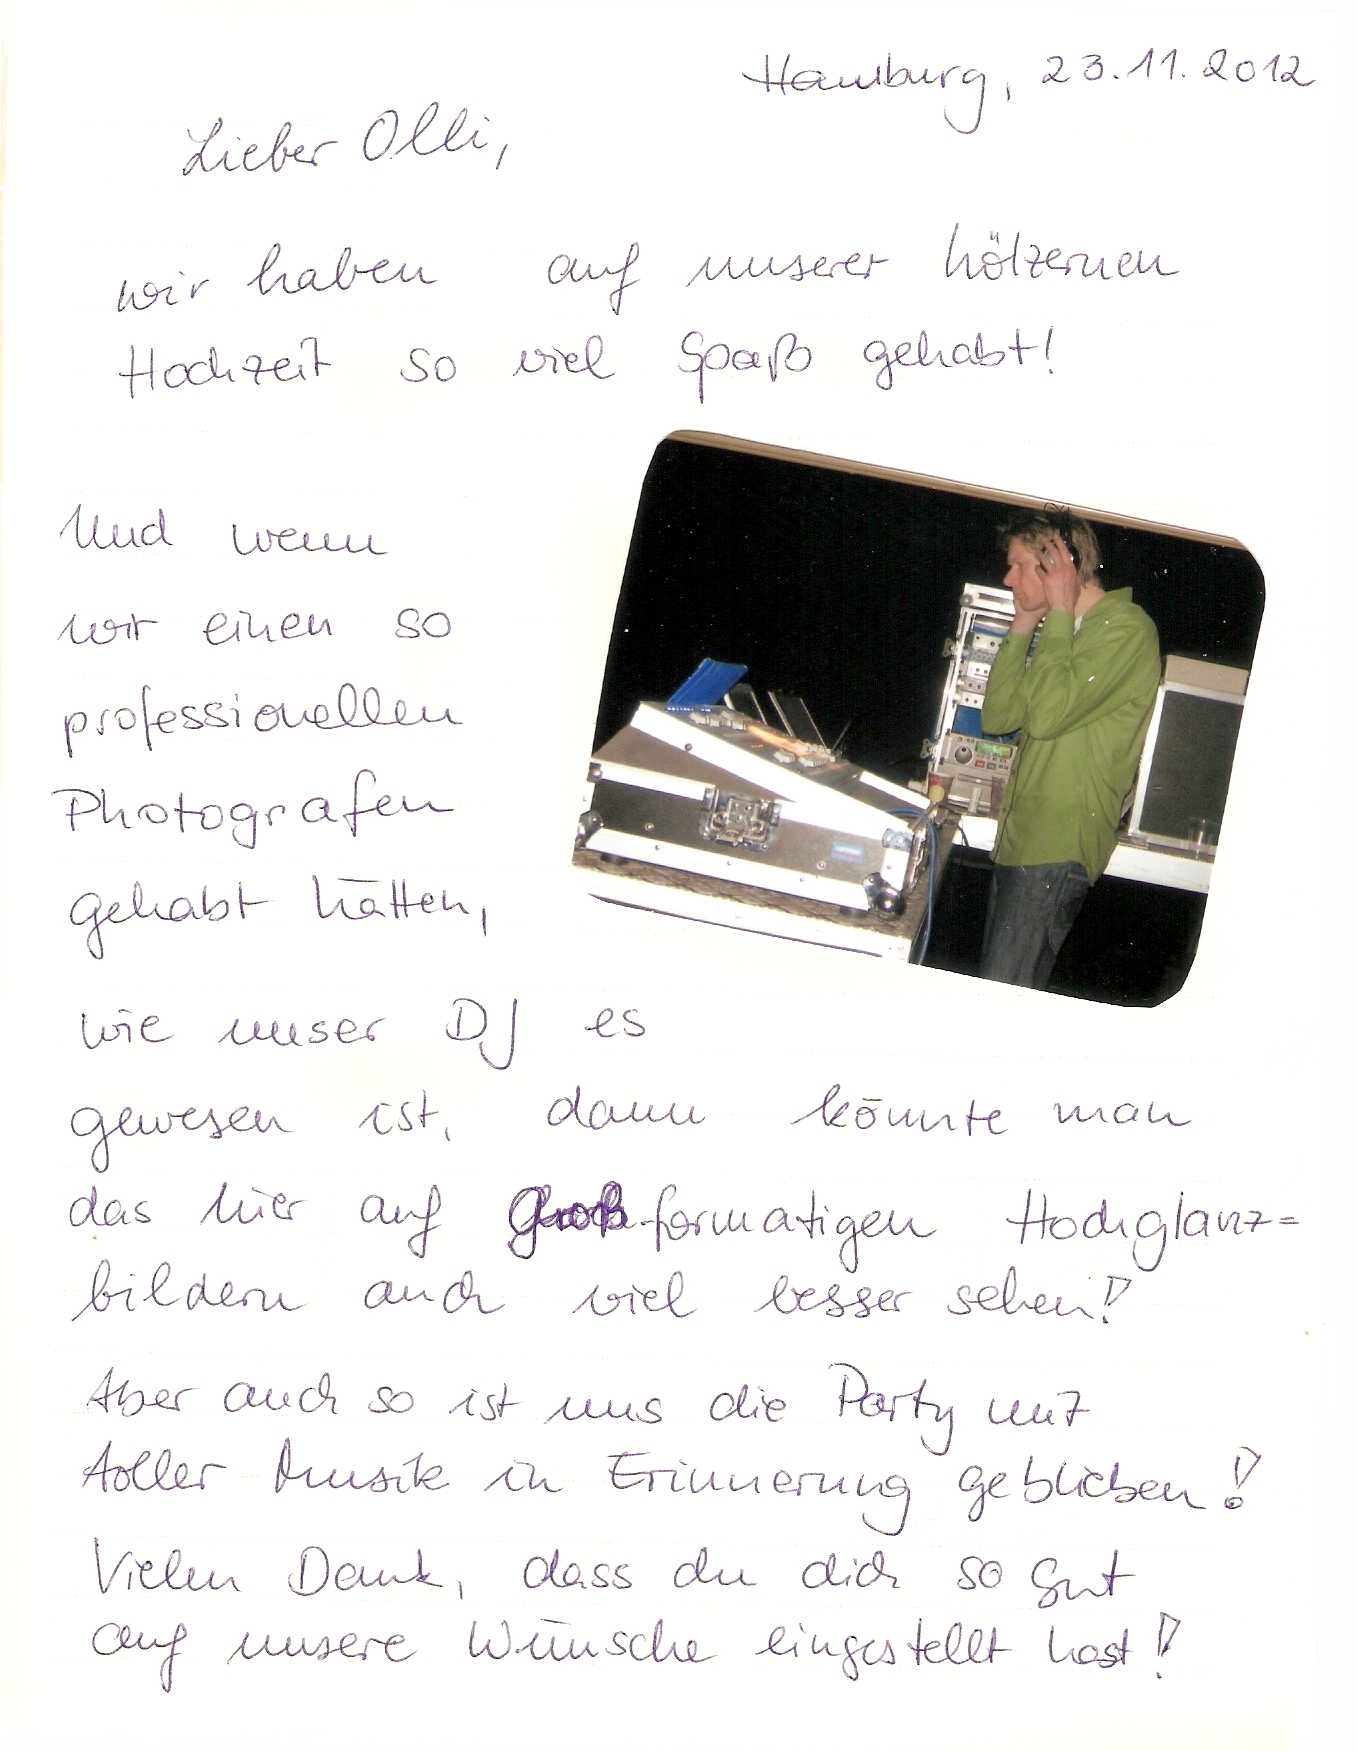 Hamburg, 23.11.2012
Lieber Olli,
wir haben auf unserer hölzernen
Hochzeit so viel Spaß gehabt!
Und wenn
wir einen so
professionellen
Photografen
gehabt hätten,
wie unser DJ es
gewesen ist, dann könnte man
das hier auf großformatigen Hochglanz=
bildern auch viel besser sehen!
Aber auch so ist uns die Party mit
toller Musik in Erinnerung geblieben!
Vielen Dank, dass du dich so gut
auf unsere Wünsche eingestellt hast!